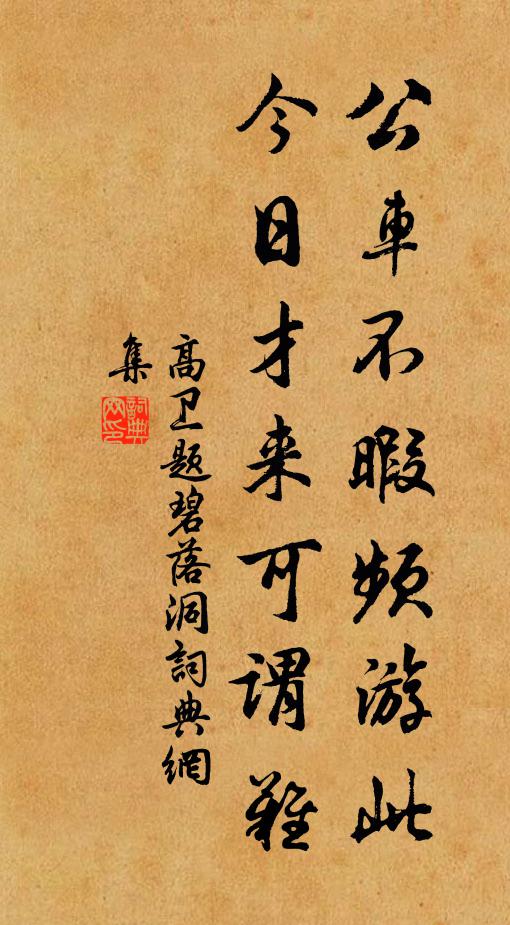 公車不暇頻游此
今日才来可謂難
高卫题碧落洞詞典網
集
詞典網印